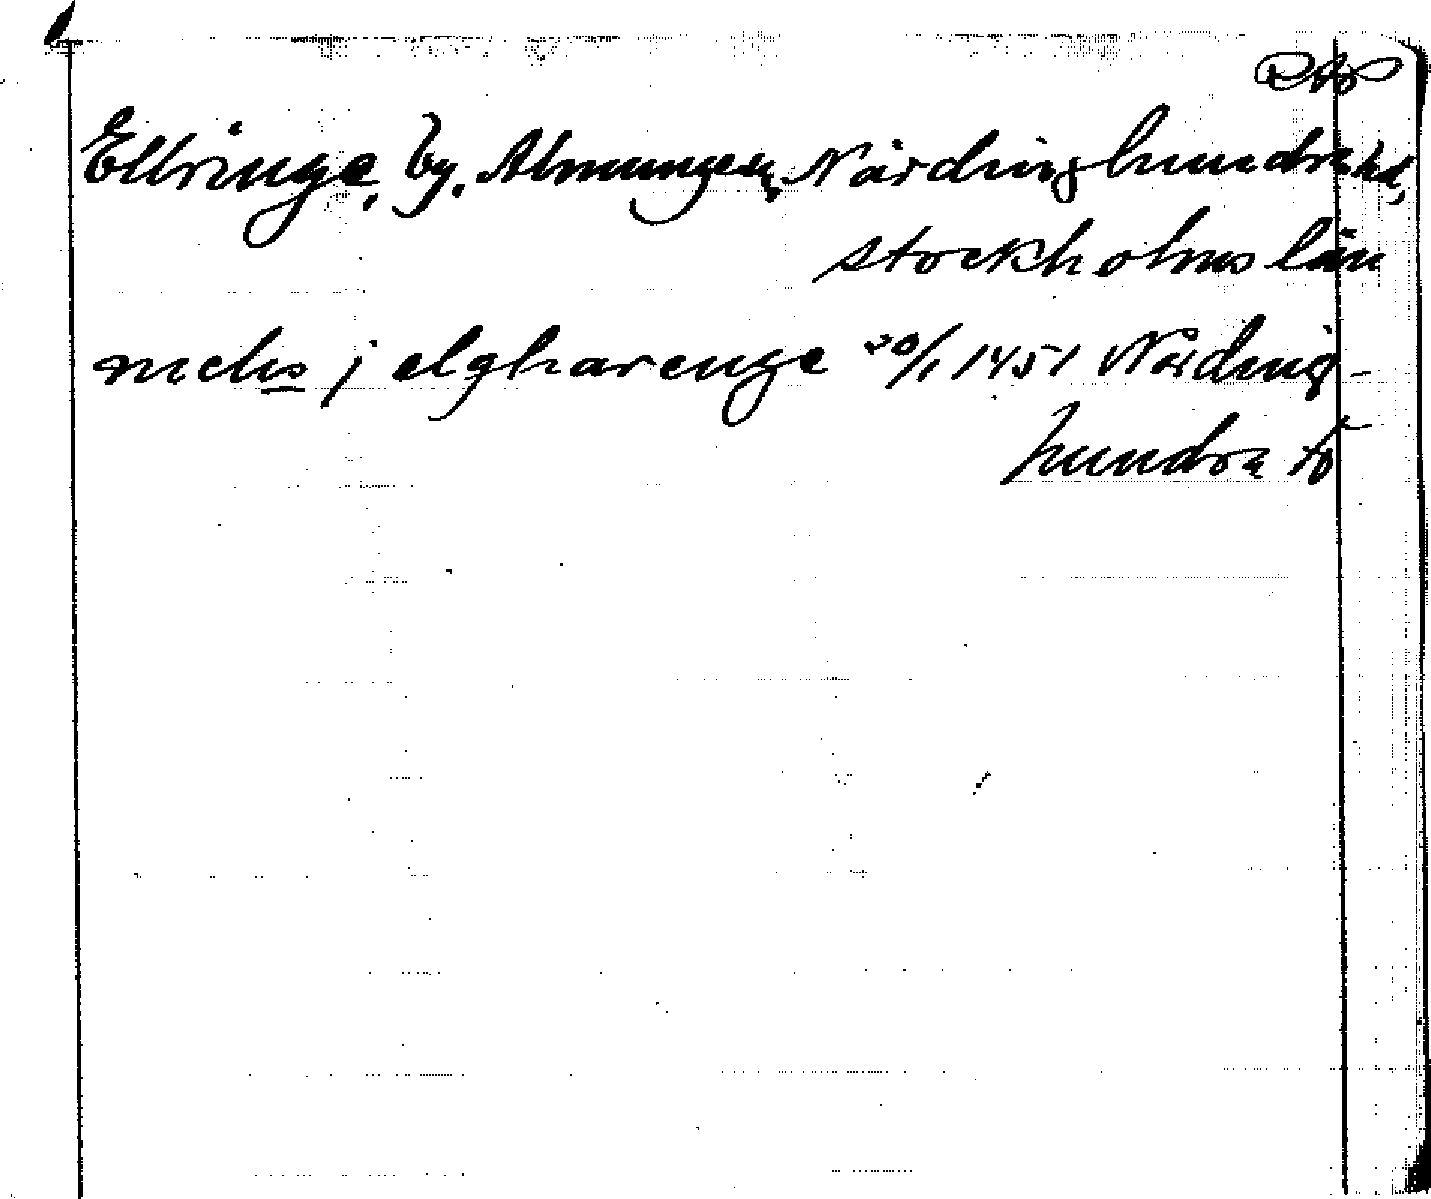 Ellringe, by. Almunge sn, Närdinghundra hd,
Stockholms län
nichs j elgharenge 20/1 1451 Närding-
hundra